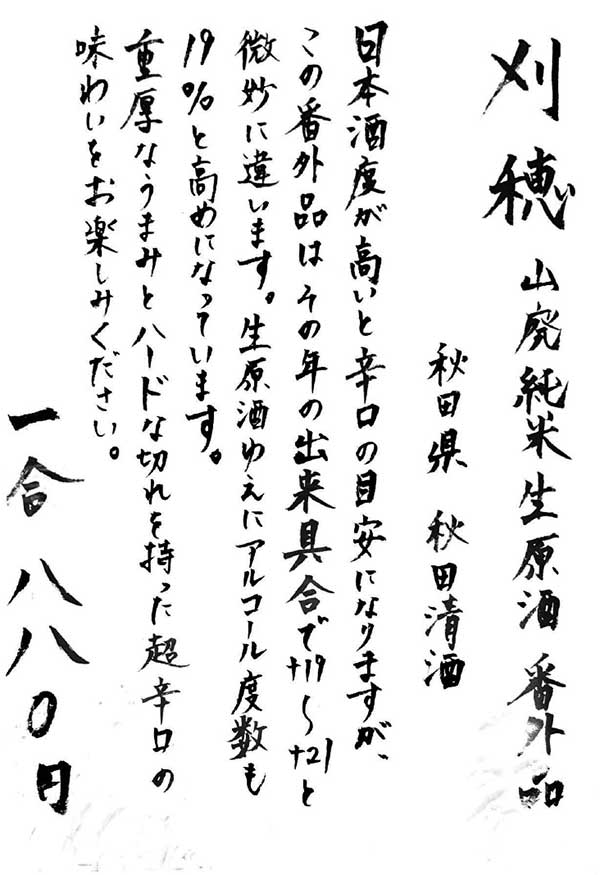 刈穂 山廃純米生原酒 番外品
秋田県 秋田清酒
日本酒度が高いと辛口の目安になりますが、
この番外品はその年の出来具合で+19〜+21と
微妙に違います。生原酒ゆえにアルコール度数も
19%と高めになっています。
重厚なうまみとハードな切れを持った超辛口の
味わいをお楽しみください。
一合 八八〇円